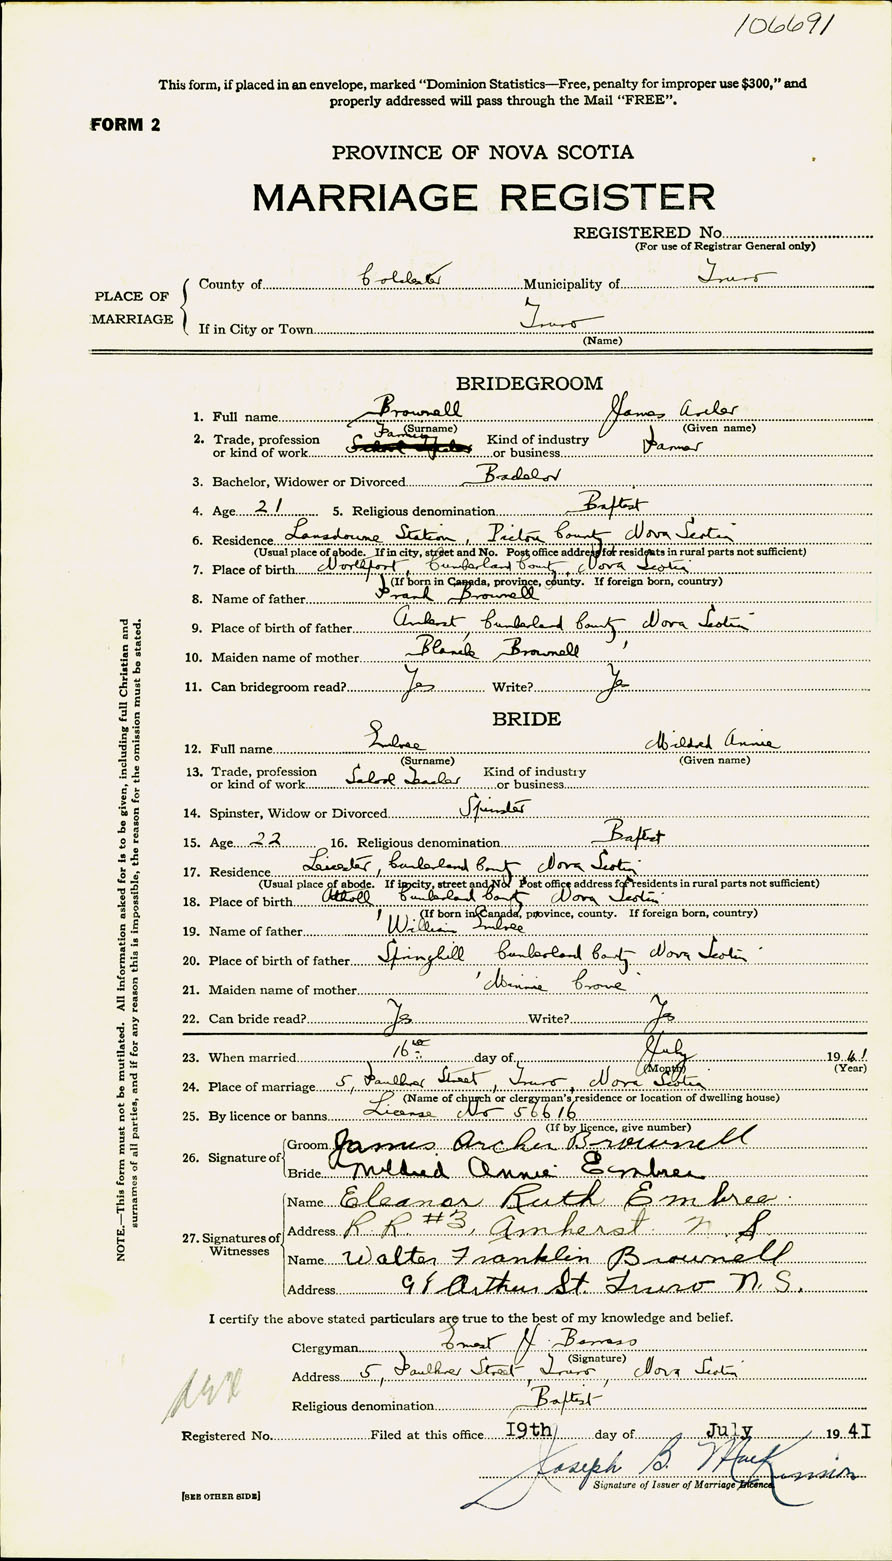 106691
This form, if placed in an envelope, marked "Dominion Statistics—Free, penalty for improper use $300," and
properly addressed will pass through the Mail "FREE".
FORM 2
PROVINCE OF NOVA SCOTIA
MARRIAGE REGISTER
REGISTERED No.
(For use of Registrar General only)
PLACE OF MARRIAGE
County of Colchester Municipality of Truro
If in City or Town Truro
(Name)
BRIDEGROOM
1. Full name Brownell James Archer
(Surname) (Given name)
2. Trade, profession or kind of work Farming Kind of industry or business Farmer
3. Bachelor, Widower or Divorced Bachelor
4. Age 21 5. Religious denomination Baptist
6. Residence Lansdowne Station, Pictou County, Nova Scotia
(Usual place of abode. If in city, street and No. Post office address for residents in rural parts not sufficient)
7. Place of birth Northport, Cumberland County, Nova Scotia
(If born in Canada, province, county. If foreign born, country)
8. Name of father Frank Brownell
9. Place of birth of father Amherst, Cumberland County, Nova Scotia
10. Maiden name of mother Blanch Brownell
11. Can bridegroom read? Yes Write? Yes
BRIDE
12. Full name Embree Mildred Annie
(Surname) (Given name)
13. Trade, profession or kind of work School Teacher Kind of industry or business
14. Spinster, Widow or Divorced Spinster
15. Age 22 16. Religious denomination Baptist
17. Residence Leicester, Cumberland County Nova Scotia
(Usual place of abode. If in city, street and No. Post office address for residents in rural parts not sufficient)
18. Place of birth Atholl Cumberland County Nova Scotia
(If born in Canada, province, county. If foreign born, country)
19. Name of father William Embree
20. Place of birth of father Springhill Cumberland County Nova Scotia
21. Maiden name of mother Minnie Crowe
22. Can bride read? Yes Write? Yes
23. When married 16th day of July 1941
(Month) (Year)
24. Place of marriage 5, Faulkner Street, Truro, Nova Scotia
(Name of church or clergyman's residence or location of dwelling house)
25. By licence or banns License No 56616
(If by licence, give number)
26. Signature of
Groom James Archer Brownell
Bride Mildred Annie Embree
27. Signatures of Witnesses
Name Eleanor Ruth Embree
Address R.R. #3, Amherst N.S
Name Walter Franklin Brownell
Address 91 Arthur St. Truro N.S.
I certify the above stated particulars are true to the best of my knowledge and belief.
Clergyman Ernest J. Barrass
(Signature)
Address 5, Faulkner Street, Truro, Nova Scotia
Religious denomination Baptist
Registered No. Filed at this office I9th day of July 1941
Joseph B. MacKinnon
Signature of Issuer of Marriage Licence
[SEE OTHER SIDE]
NOTE.—This form must not be mutilated. All information asked for is to be given, including full Christian and
surnames of all parties, and if for any reason this is impossible, the reason for the omission must be stated.